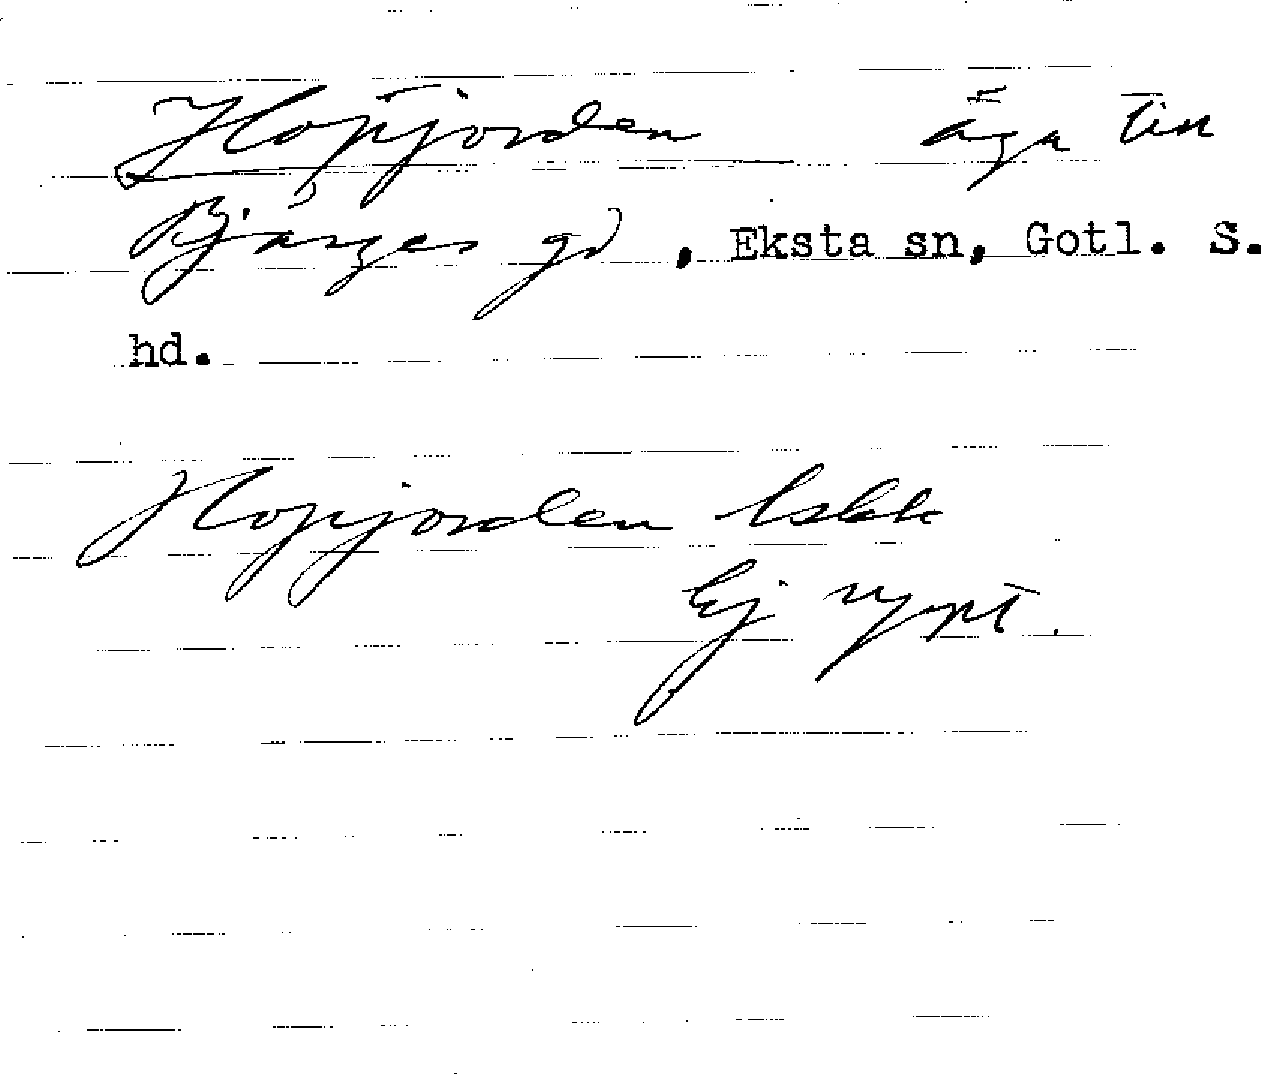 Hopjorden äga till
Bjärges gd, Eksta sn, Gotl. S.
hd.
Hopjorden lskk
Ej uppt.